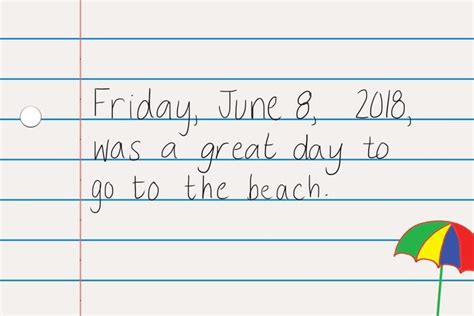 Friday, June 8, 2018,
was a great day to
go to the beach.